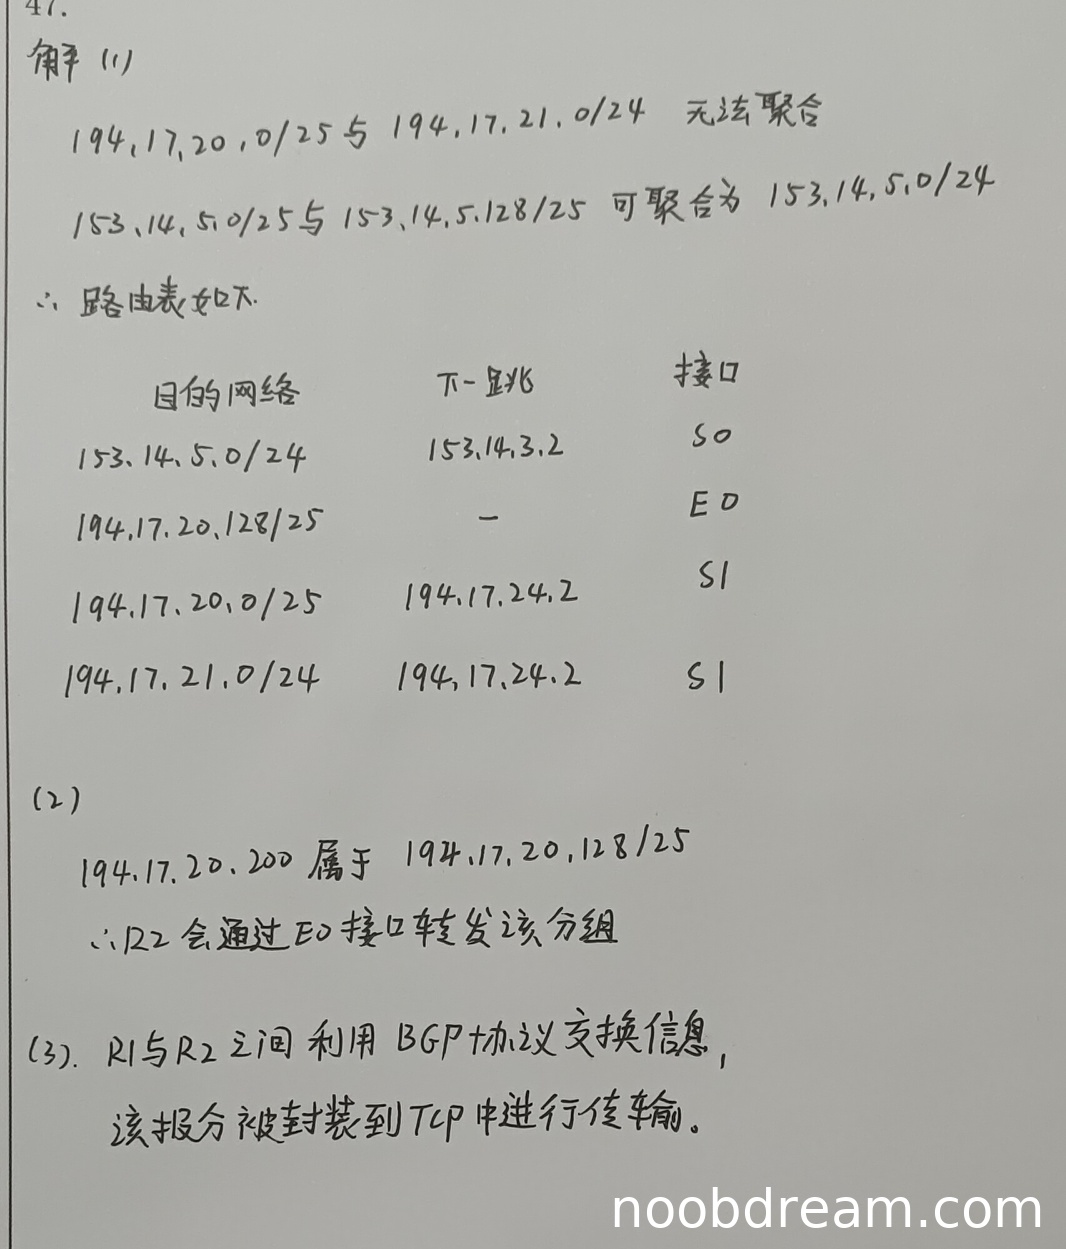 47.
解 (1)
194.17.20.0/25与 194.17.21.0/24 无法聚合
153.14.5.0/25与153.14.5.128/25 可聚合为 153.14.5.0/24
∴ 路由表如下.
目的网络 下一跳 接口
153.14.5.0/24 153.14.3.2 S0
194.17.20.128/25 — E0
194.17.20.0/25 194.17.24.2 S1
194.17.21.0/24 194.17.24.2 S1
(2)
194.17.20.200 属于 194.17.20.128/25
∴R2 会通过E0接口转发该分组
(3). R1与R2之间 利用 BGP协议交换信息,
该报分被封装到TCP中进行传输。
noobdream.com